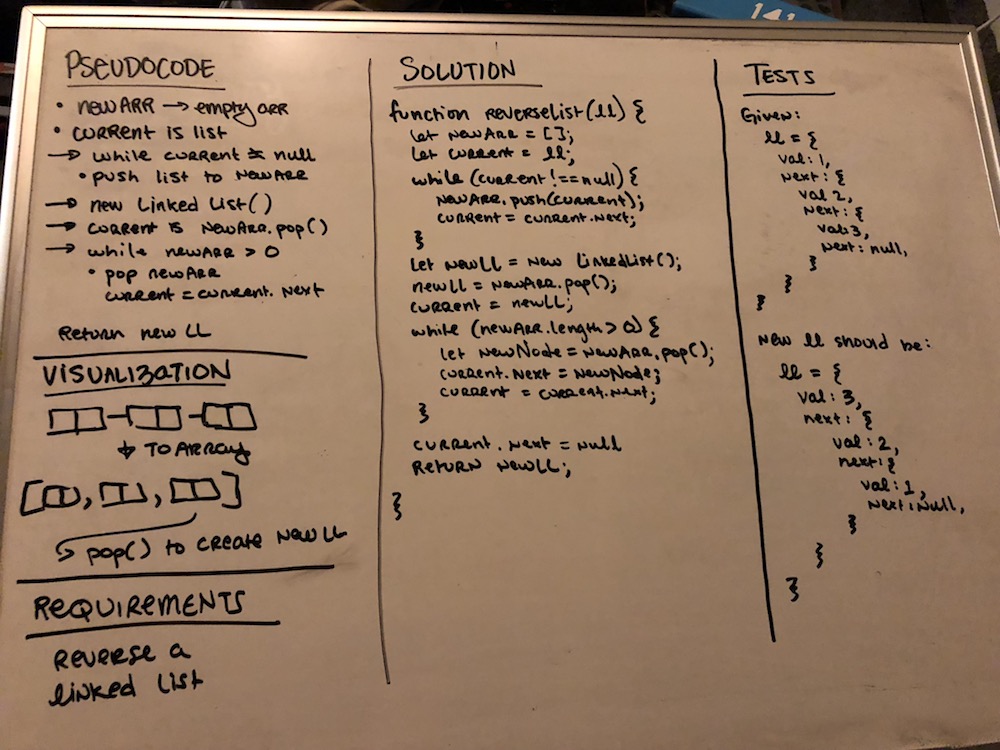 PSEUDOCODE
• newARR → empty arr
• current is list
→ while current ≠ null
• push list to newARR
→ new Linked List()
→ current is newArr.pop()
→ while newARR > 0
• pop newArr
current = current.next
Return new LL
VISUALIZATION
↓ TO ARRAY
[ , , ]
pop() to create new LL
REQUIREMENTS
REVERSE a
linked list
SOLUTION
function reverseList(ll) {
let newArr = [];
let current = ll;
while (current !== null) {
newArr.push(current);
current = current.next;
}
let newLL = new LinkedList();
newLL = newArr.pop();
current = newLL;
while (newArr.length > 0) {
let newNode = newArr.pop();
current.next = newNode;
current = current.next;
}
current.next = null
return newLL;
}
TESTS
Given:
ll = {
val: 1,
next: {
val 2,
next: {
val: 3,
next: null,
}
}
}
New ll should be:
ll = {
val: 3,
next: {
val: 2,
next: {
val: 1,
next: null,
}
}
}
141